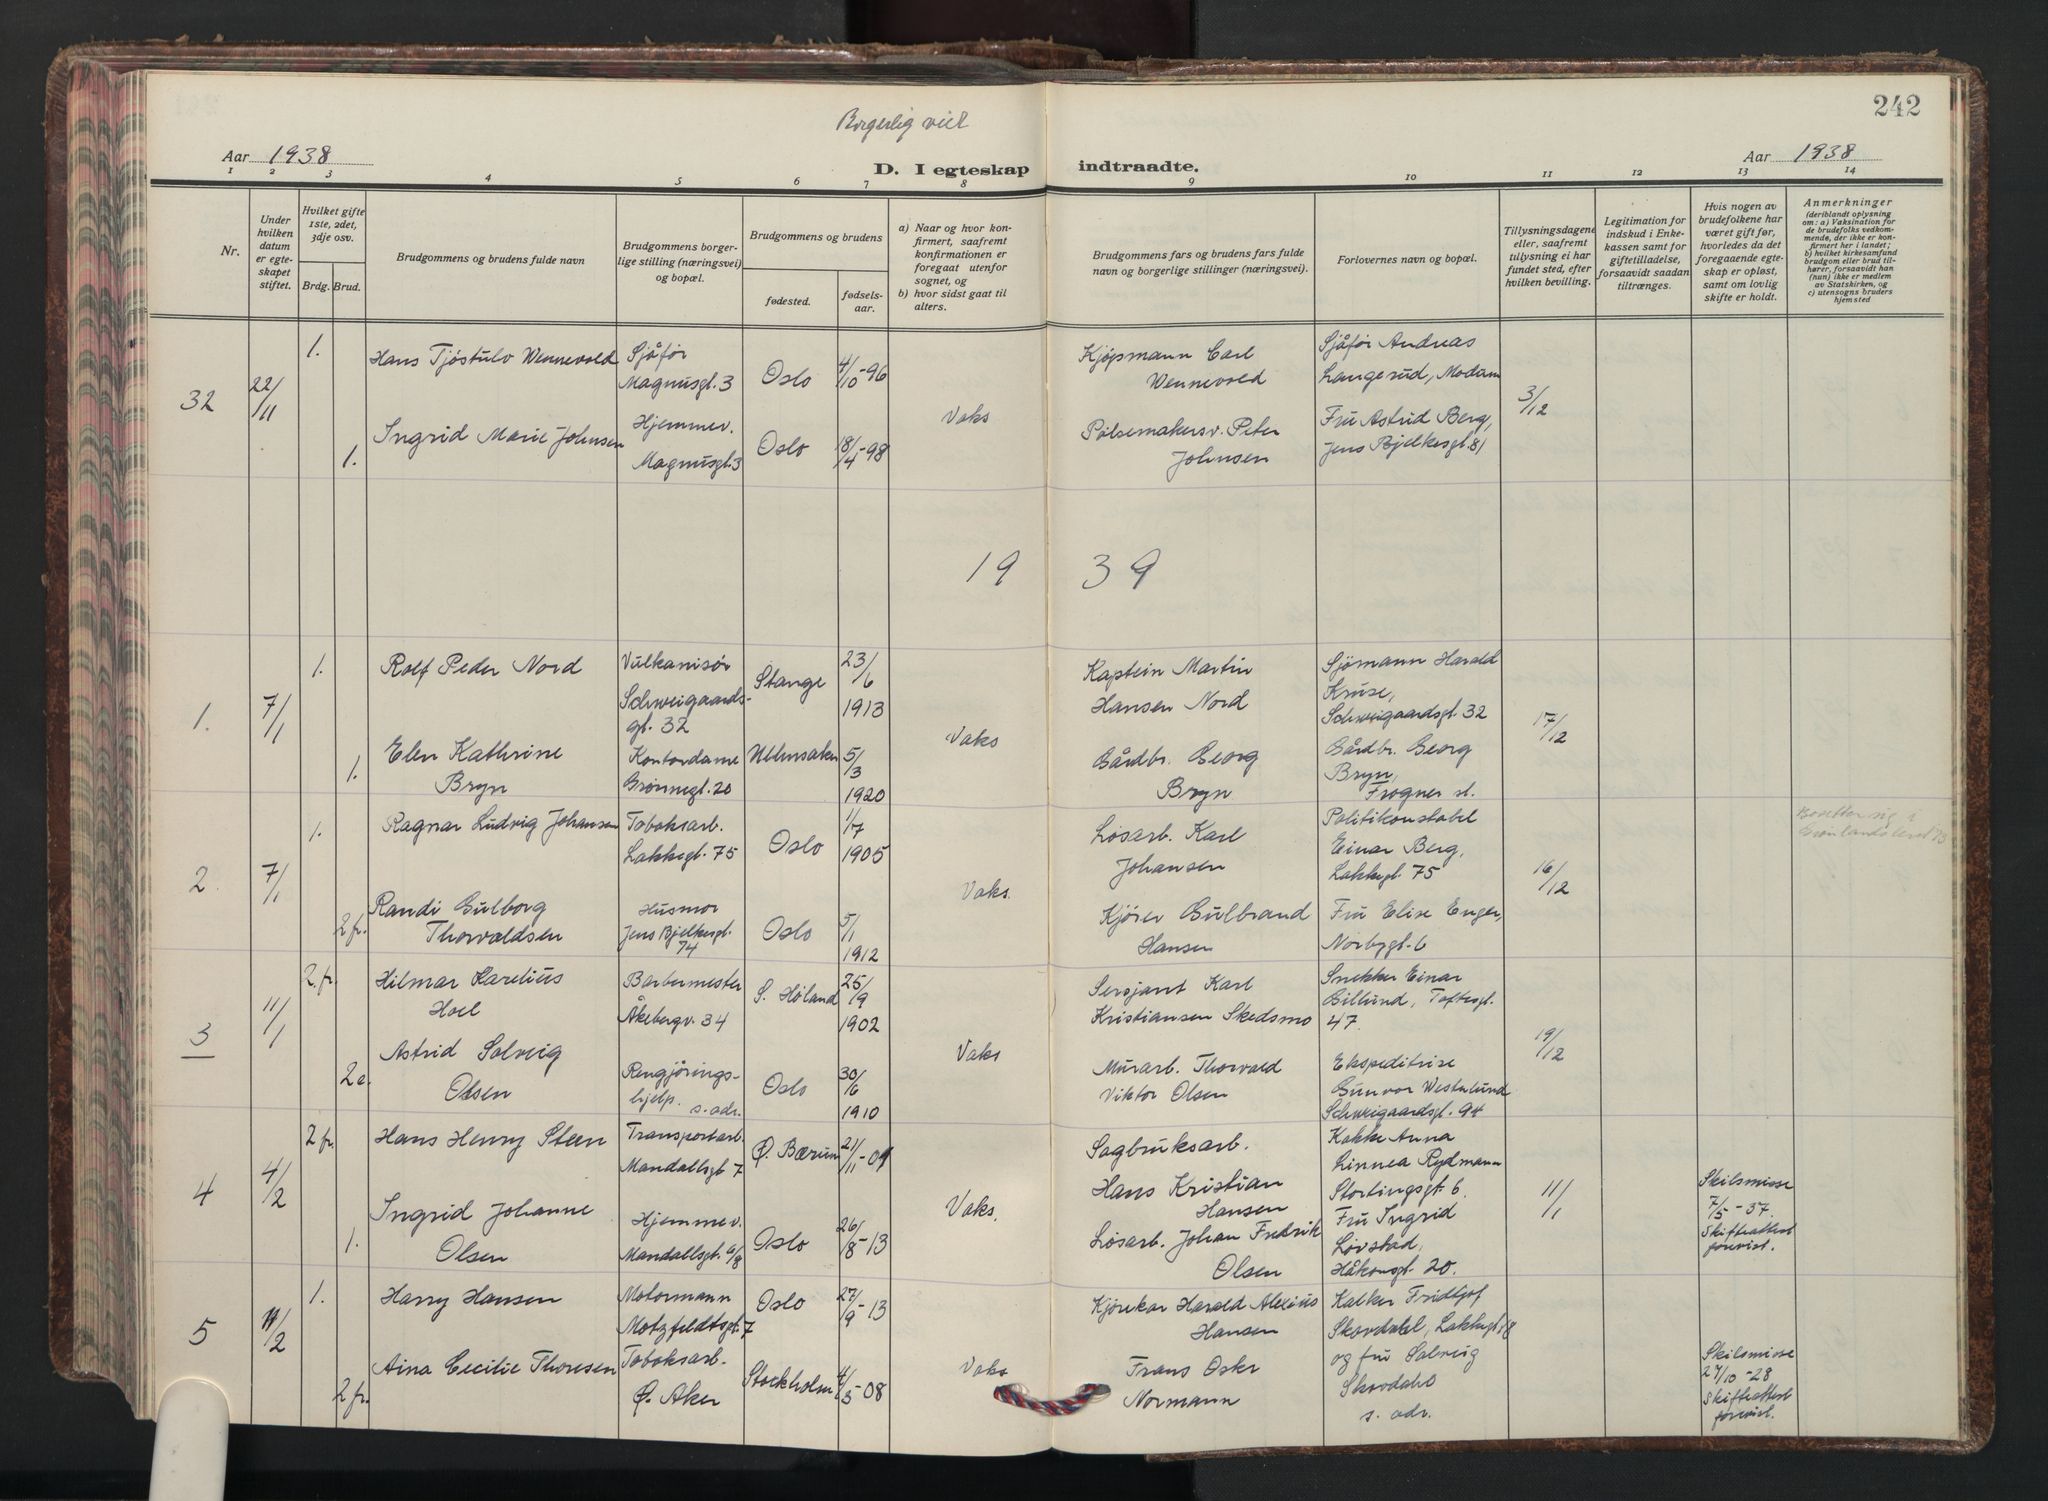 242
Borgerlig viet
Aar 1938
D. I egteskap indtraadte.
Aar 1938
1 2 3 4 5 6 7 8 9 10 11 12 13 14
Nr.
Under hvilken datum er egteskapet stiftet.
Hvilket gifte 1ste, 2det, 3dje osv.
Brdg. Brud.
Brudgommens og brudens fulde navn
Brudgommens borgerlige stilling (næringsvei) og bopæl.
Brudgommens og brudens
fødested.
fødselsaar.
a) Naar og hvor konfirmert, saafremt konfirmationen er foregaat utenfor sognet, og
b) hvor sidst gaat til alters.
Brudgommens fars og brudens fars fulde navn og borgerlige stillinger (næringsvei).
Forlovernes navn og bopæl.
Tillysningsdagene eller, saafremt tillysning ei har fundet sted, efter hvilken bevilling.
Legitimation for indskud i Enkekassen samt for giftetilladelse, forsaavidt saadan tiltrænges.
Hvis nogen av brudefolkene har været gift før, hvorledes da det foregaaende egteskap er opløst, samt om lovlig skifte er holdt.
Anmerkninger
(deriblandt oplysning om: a) Vaksination for de brudefolks vedkommende, der ikke er konfirmert her i landet; b) hvilket kirkesamfund brudgom eller brud tilhører, forsaavidt han (hun) ikke er medlem av Statskirken, og c) utensogns bruders hjemsted
32
22/11
1.
Hans Tjöstulv Wennevold
Sjåför
Magnusgt. 3
Oslo
4/10-96
Kjöpmann Carl
Wennevold
Sjåför Andreas
Langerud, Modum
3/12
Vaks
1.
Ingrid Marie Johnsen
Hjemmev.
Magnusgt. 3
Oslo
18/4-98
Pölsemakersv. Peter
Johnsen
Fru Astrid Berg,
Jens Bjelkesgt. 81
19 39
1.
7/1
1.
Rolf Peder Nord
Vulkanisör
Schweigaards-
gt. 32
Stange
23/6
1913
Kaptein Martin
Hansen Nord
Sjömann Harald
Kruse,
Schweigaardsgt. 32
17/12
Vaks
1.
Elen Kathrine
Bryn
Kontordame
Grönnegt. 20
Ullensaker
5/3
1920
Gårdbr. Georg
Bryn
Gårdbr. Georg
Bryn,
Frogner st.
2.
7/1
1.
Ragnar Ludvig Johansen
Tobaksarb.
Lakkegt. 75
Oslo
1/7
1905
Lösarb. Karl
Johansen
Politikonstabel
Einar Berg,
Lakkegt. 75
16/12
Bosetter sig i
Grönlandsleret 73
Vaks.
2 fr.
Randi Gulborg
Thorvaldsen
Husmor
Jens Bjelkesgt.
74
Oslo
5/1
1912
Kjörer Gulbrand
Hansen
Fru Elise Enger,
Norbygt. 6
3
11/1
2 fr.
Hilmar Karelius
Hoel
Barbermester
Åkebergv. 34
S. Höland
25/9
1902
Sersjant Karl
Kristiansen Skedsmo
Snekker Einar
Gillund, Toftesgt.
47.
19/12
Vaks
2 e.
Astrid Solveig
Olsen
Rengjörings-
hjelp. s. adr.
Oslo
30/6
1910
Murarb. Thorvald
Viktor Olsen
Ekspeditrise
Gunvor Westerlund
Schweigaardsgt. 94
4
4/2
2 fr.
Hans Henry Steen
Transportarb.
Mandallsgt 7
Ö. Bærum
21/11-09
Sagbruksarb.
Hans Kristian
Hansen
Kokke Anna
Linnea Rydmann
Stortingsgt. 6.
11/1
Skilsmisse
7/5-37.
Skifteattest
forevist.
Vaks.
1.
Ingrid Johanne
Olsen
Hjemmev.
Mandallsgt. 6/8
Oslo
26/8-13
Lösarb. Johan Fredrik
Olsen
Fru Ingrid
Lövstad,
Håkonsgt. 20.
5
11/2
1.
Harry Hansen
Motormann
Motzfeldtsgt. 7
Oslo
27/9-13
Kjörekar Harald Alexius
Hansen
Kalker Fridtjof
Skovdahl, Lakkegt. 18
Vaks
2 fr.
Aina Cecilie Thoresen
Tobaksarb.
Ö. Aker
Stockholm
4/3-08
Frans Oskr
Normann
og fru Solveig
Skovdahl
s. adr.
Skilsmisse
27/10-28
Skifteattest
forevist.